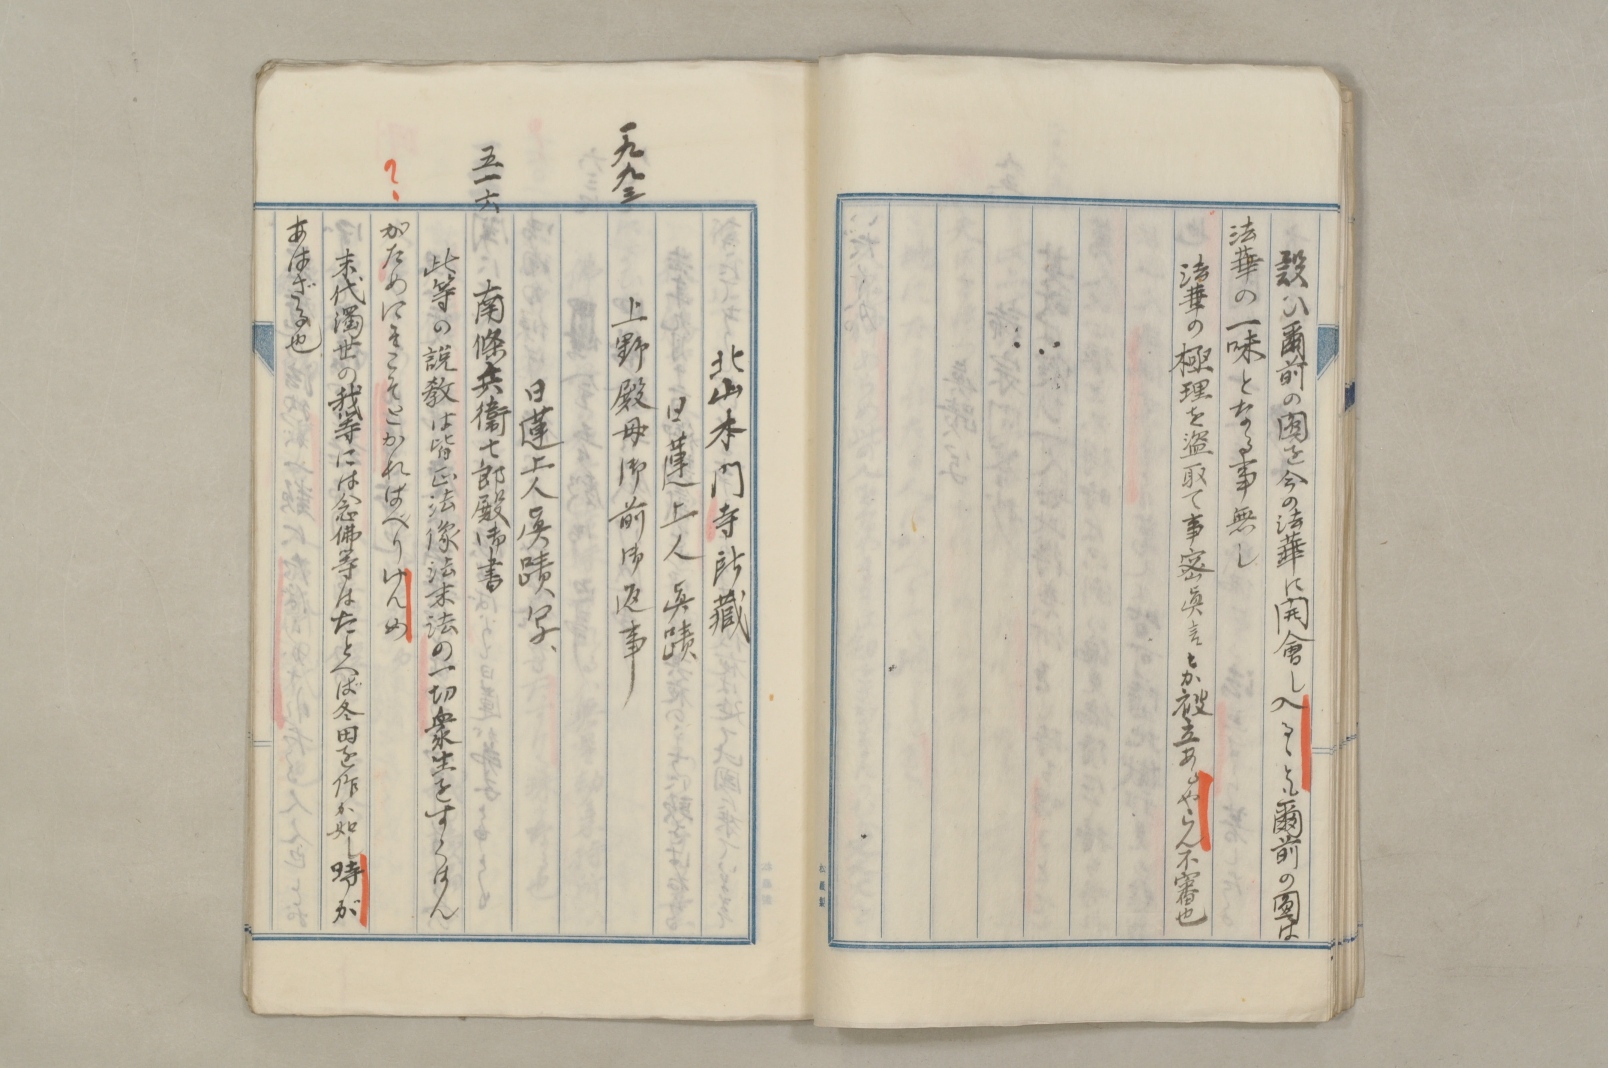 設ひ爾前の圓を今の法華に開會し入るゝとも爾前の圓は
法華の一味となる事無し
法華の極理を盗取て事密眞言とか被立あるやらん不審也
北山本門寺所藏
日蓮上人眞蹟
一九九三
上野殿母御前御返事
日蓮上人眞蹟、写、
五一六
南條兵衞七郎殿御書
此等の説教は皆正法像法末法の一切衆生をすくはん
がためにこそとかれはべりけんめ
末代濁世の我等には念佛等はたとへば冬田を作か如し時が
あはざる也